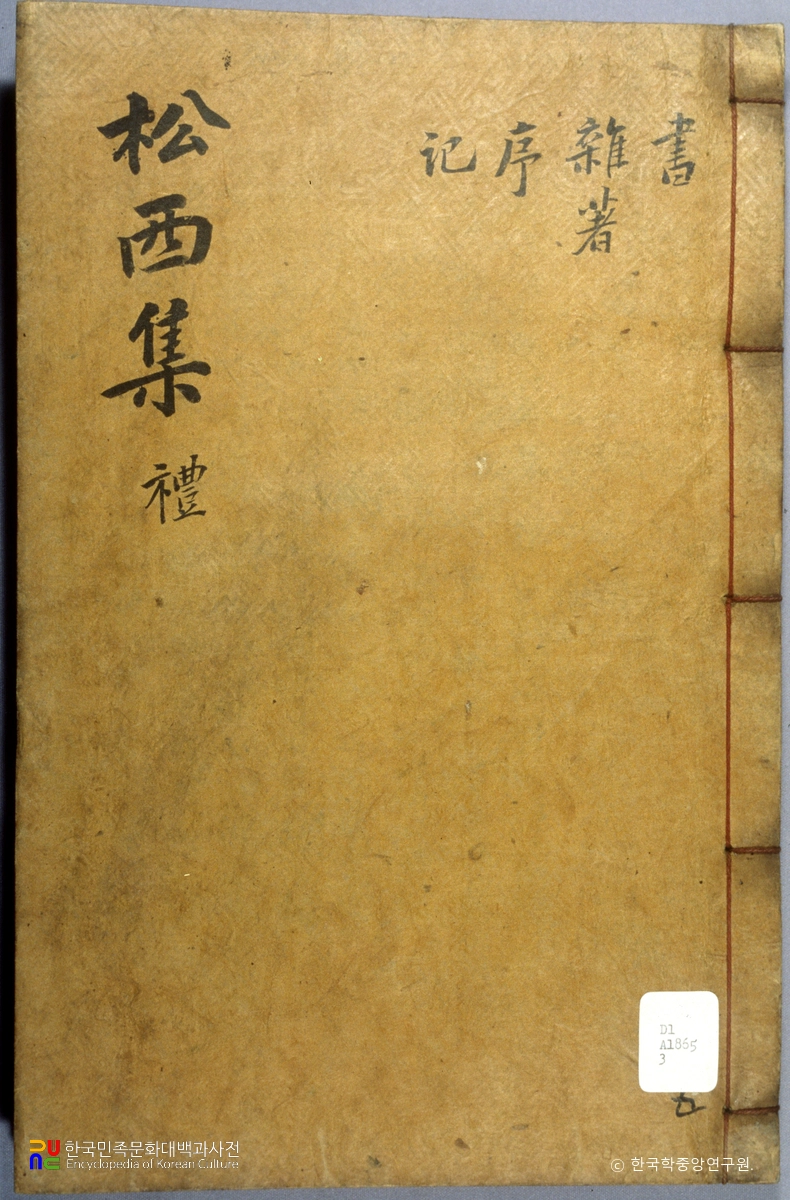 書
雜著
序
记
松西集 禮
D1
A1865
3
五
한국민족문화대백과사전
Encyclopedia of Korean Culture
© 한국학중앙연구원